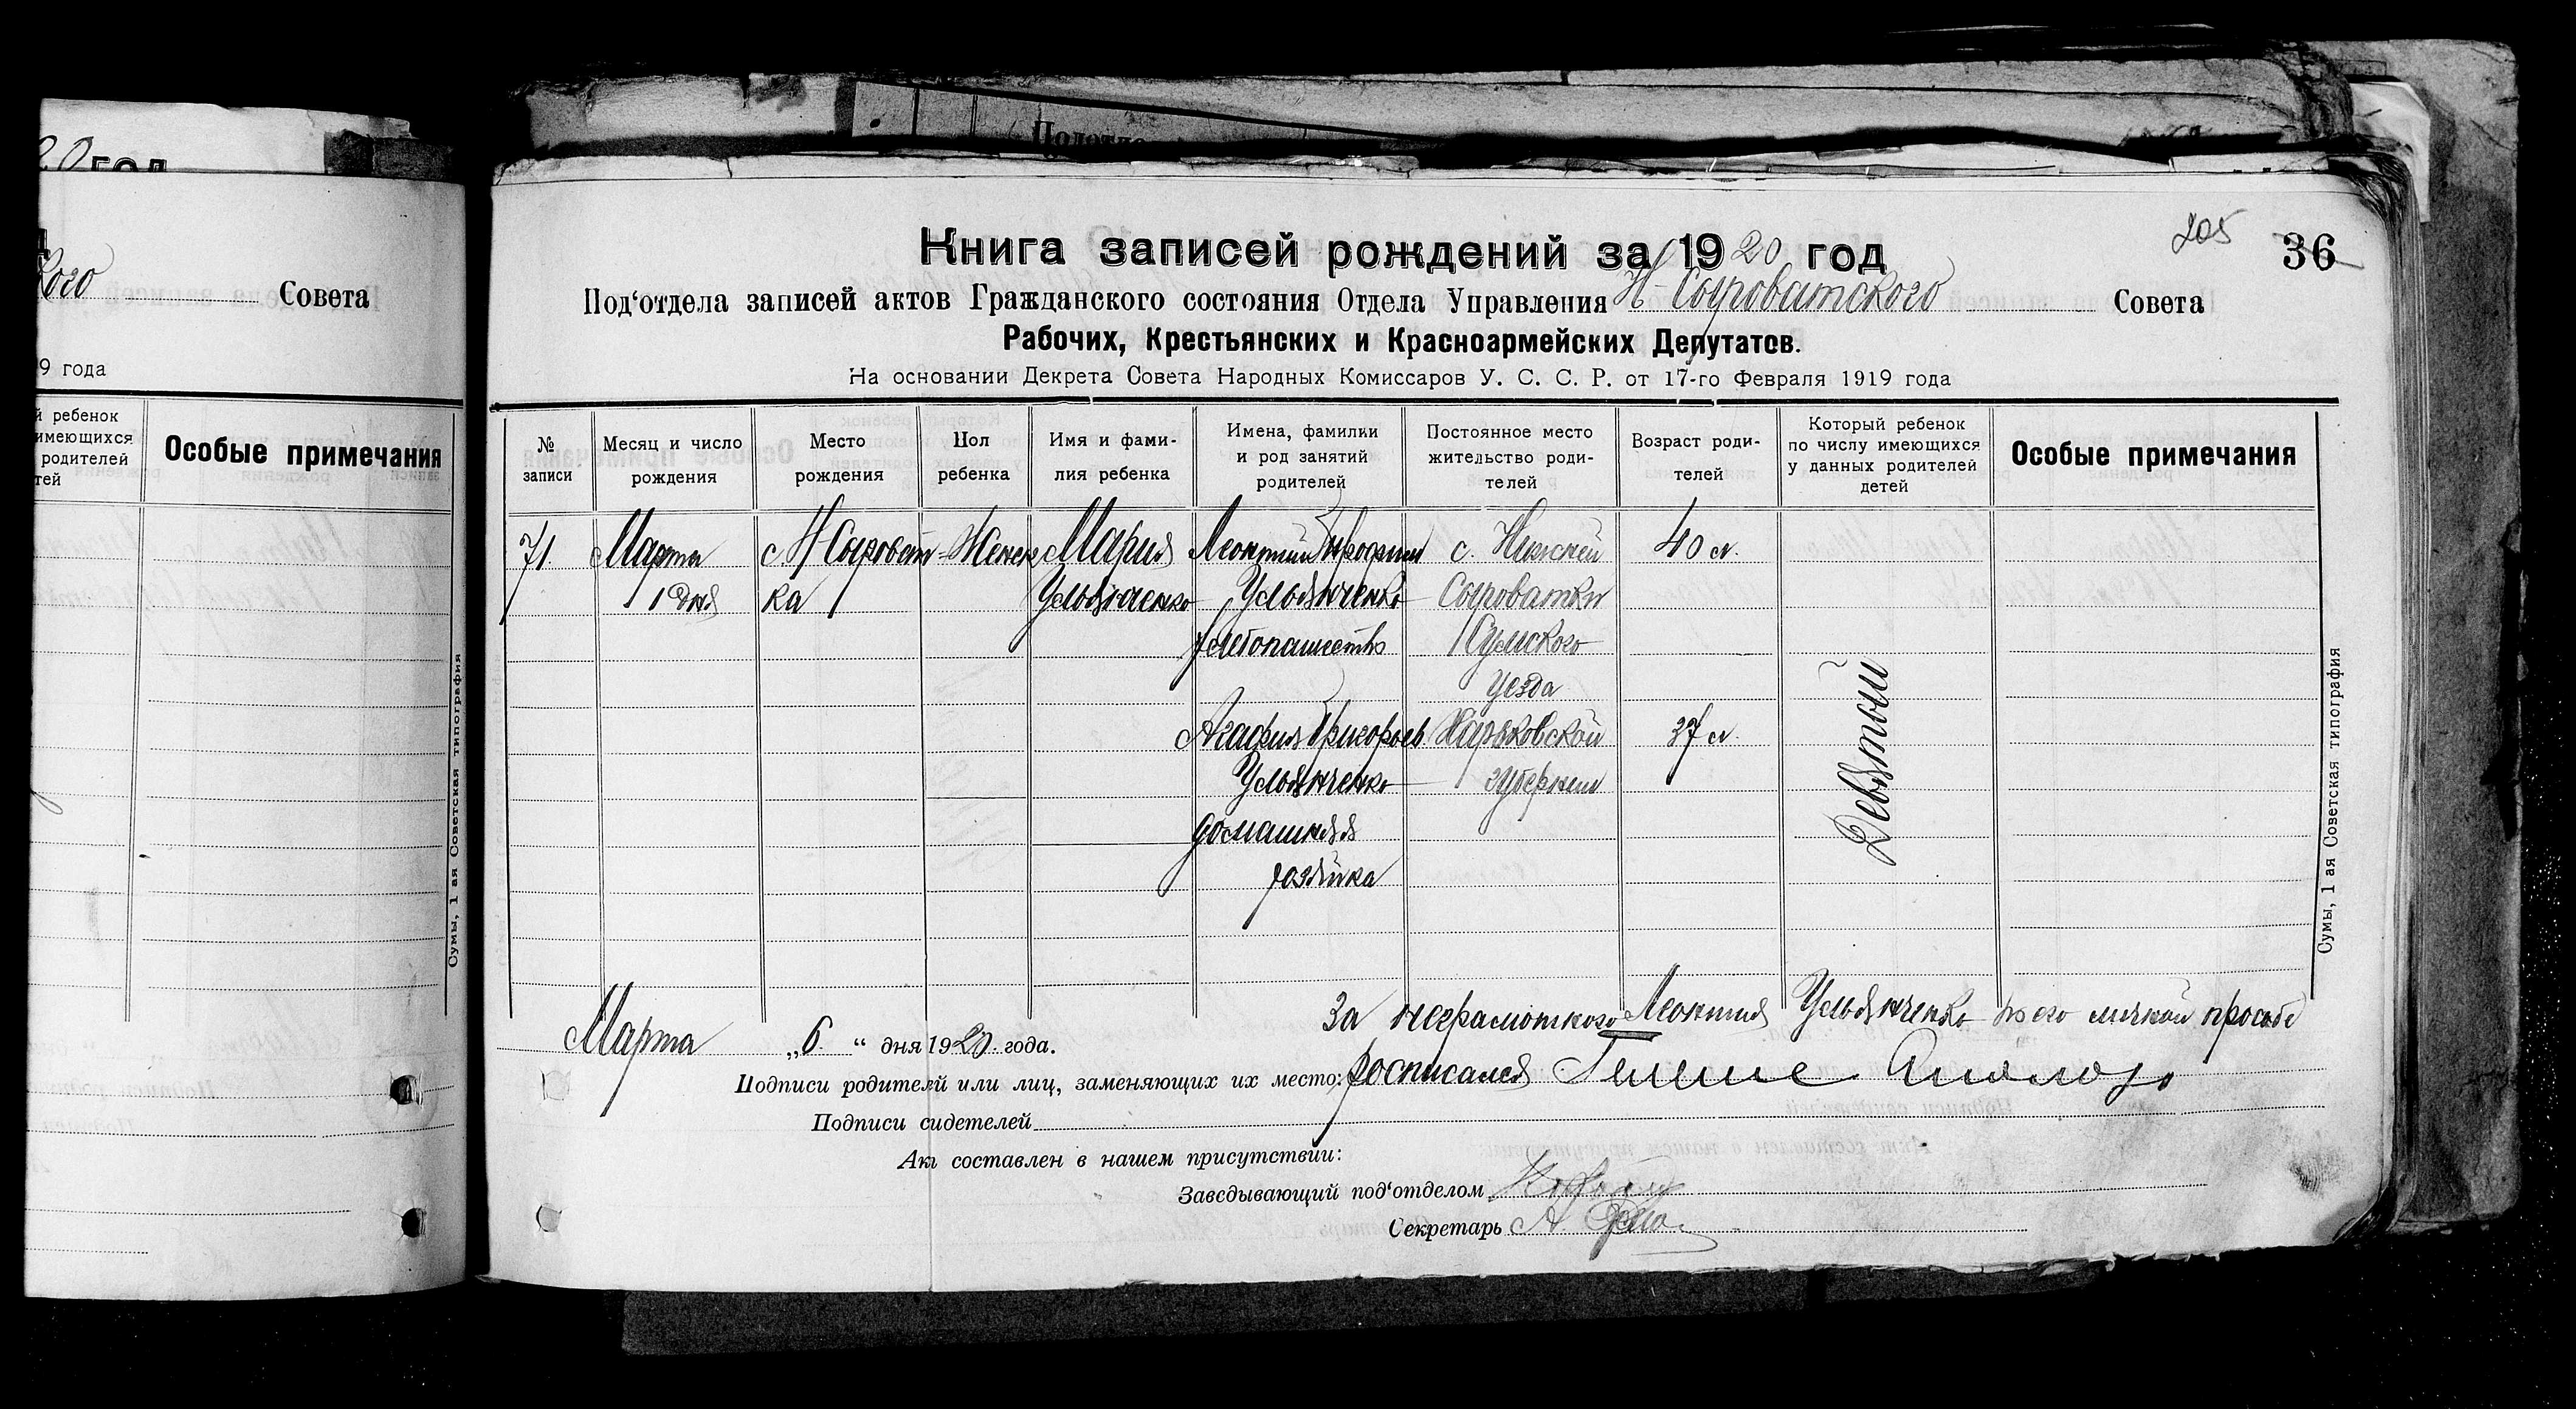 20 год
кого Совета
9 года
й ребенок
имеющихся
родителей
тей
Особые примечания
Сумы, 1 ая Советская типография
Подотде
205
36
Книга записей рождений за 1920 год
Под‘отдела записей актов Гражданского состояния Отдела Управления Н-Сыроватского Совета
Рабочих, Крестьянских и Красноармейских Депутатов.
На основании Декрета Совета Народных Комиссаров У. С. С. Р. от 17-го Февраля 1919 года
№ записи
Месяц и число рождения
Место рождения
Пол ребенка
Имя и фами-лия ребенка
Имена, фамилки и род занятий родителей
Постоянное место жительство роди-телей
Возраст роди-телей
Который ребенок по числу имеющихся у данных родителей детей
Особые примечания
71. Марта с. Н Сыроват- Женск Мария Леонтий с. Нижней 40 л.
1 дня ка Ульянченко Ульянченко Сыроватки
хлебопашеств Сумского
уезда
Агафия Григорьев Харьковской 37 л.
Ульянченко губернии
домашняя
хозяйка
Девятый
Сумы, 1 ая Советская типография
За неграмотного Леонтия Ульянченко по его личной прозьбе
Марта „6.“ дня 1920. года.
Подписи родителей или лиц, заменяющих их место: росписался
Подписи сидетелей
Акт составлен в нашем присутствии:
Заведывающий под‘отделом
Секретарь А.